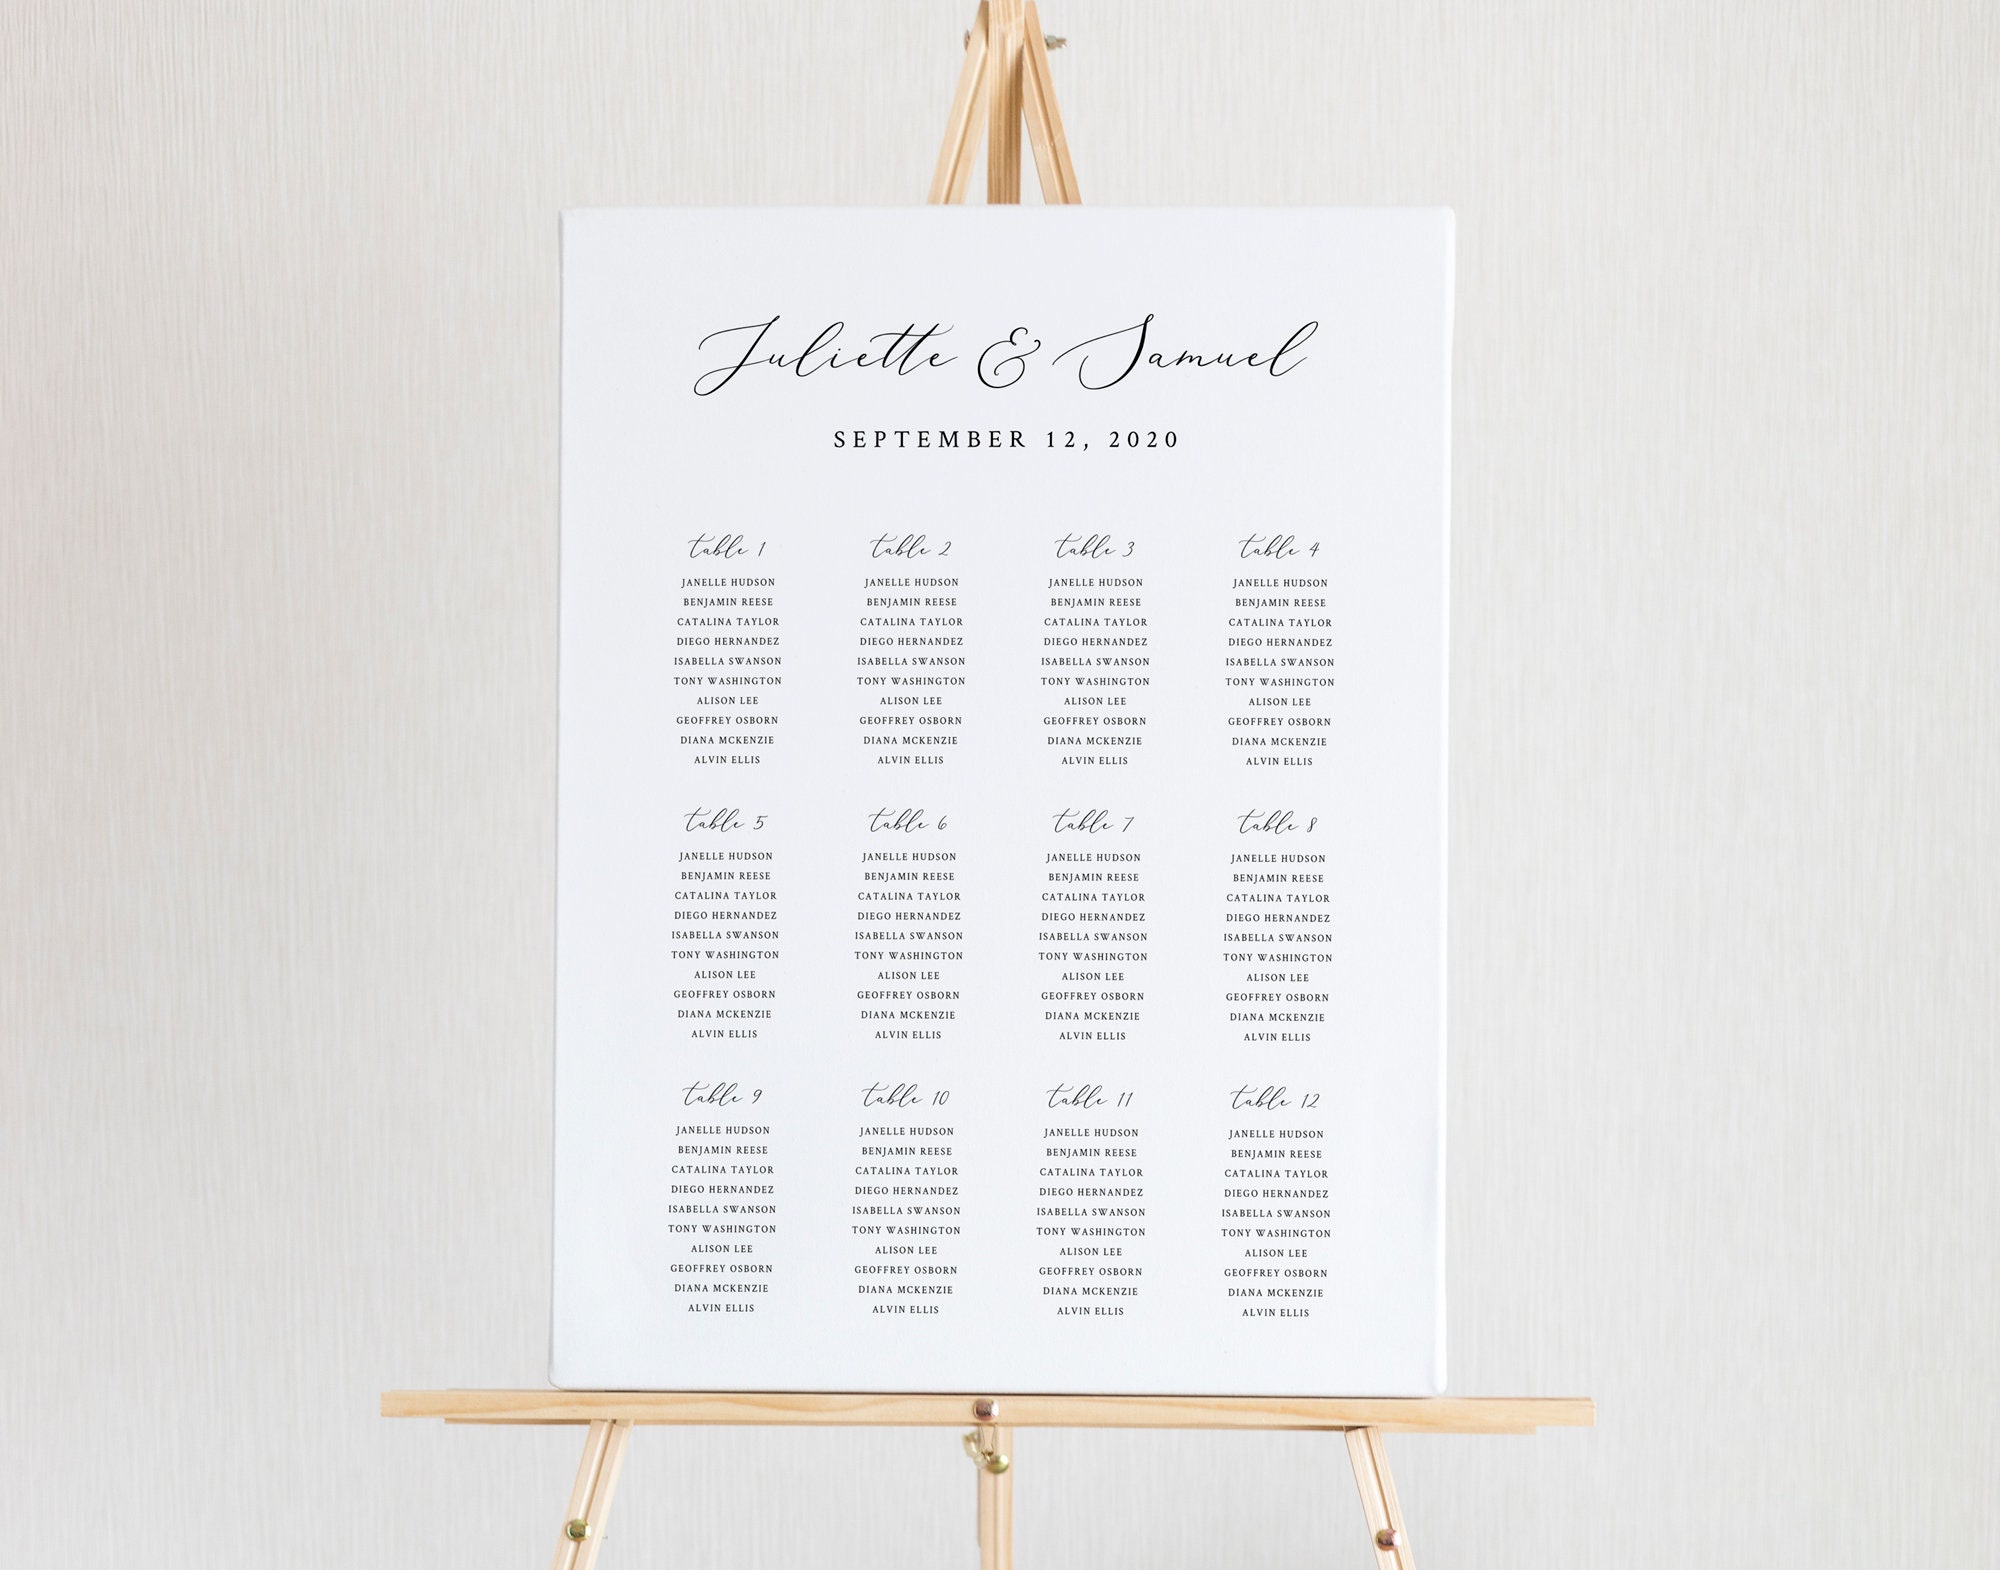 Juliette & Samuel
SEPTEMBER 12, 2020
table 1
JANELLE HUDSON
BENJAMIN REESE
CATALINA TAYLOR
DIEGO HERNANDEZ
ISABELLA SWANSON
TONY WASHINGTON
ALISON LEE
GEOFFREY OSBORN
DIANA MCKENZIE
ALVIN ELLIS
table 2
JANELLE HUDSON
BENJAMIN REESE
CATALINA TAYLOR
DIEGO HERNANDEZ
ISABELLA SWANSON
TONY WASHINGTON
ALISON LEE
GEOFFREY OSBORN
DIANA MCKENZIE
ALVIN ELLIS
table 3
JANELLE HUDSON
BENJAMIN REESE
CATALINA TAYLOR
DIEGO HERNANDEZ
ISABELLA SWANSON
TONY WASHINGTON
ALISON LEE
GEOFFREY OSBORN
DIANA MCKENZIE
ALVIN ELLIS
table 4
JANELLE HUDSON
BENJAMIN REESE
CATALINA TAYLOR
DIEGO HERNANDEZ
ISABELLA SWANSON
TONY WASHINGTON
ALISON LEE
GEOFFREY OSBORN
DIANA MCKENZIE
ALVIN ELLIS
table 5
JANELLE HUDSON
BENJAMIN REESE
CATALINA TAYLOR
DIEGO HERNANDEZ
ISABELLA SWANSON
TONY WASHINGTON
ALISON LEE
GEOFFREY OSBORN
DIANA MCKENZIE
ALVIN ELLIS
table 6
JANELLE HUDSON
BENJAMIN REESE
CATALINA TAYLOR
DIEGO HERNANDEZ
ISABELLA SWANSON
TONY WASHINGTON
ALISON LEE
GEOFFREY OSBORN
DIANA MCKENZIE
ALVIN ELLIS
table 7
JANELLE HUDSON
BENJAMIN REESE
CATALINA TAYLOR
DIEGO HERNANDEZ
ISABELLA SWANSON
TONY WASHINGTON
ALISON LEE
GEOFFREY OSBORN
DIANA MCKENZIE
ALVIN ELLIS
table 8
JANELLE HUDSON
BENJAMIN REESE
CATALINA TAYLOR
DIEGO HERNANDEZ
ISABELLA SWANSON
TONY WASHINGTON
ALISON LEE
GEOFFREY OSBORN
DIANA MCKENZIE
ALVIN ELLIS
table 9
JANELLE HUDSON
BENJAMIN REESE
CATALINA TAYLOR
DIEGO HERNANDEZ
ISABELLA SWANSON
TONY WASHINGTON
ALISON LEE
GEOFFREY OSBORN
DIANA MCKENZIE
ALVIN ELLIS
table 10
JANELLE HUDSON
BENJAMIN REESE
CATALINA TAYLOR
DIEGO HERNANDEZ
ISABELLA SWANSON
TONY WASHINGTON
ALISON LEE
GEOFFREY OSBORN
DIANA MCKENZIE
ALVIN ELLIS
table 11
JANELLE HUDSON
BENJAMIN REESE
CATALINA TAYLOR
DIEGO HERNANDEZ
ISABELLA SWANSON
TONY WASHINGTON
ALISON LEE
GEOFFREY OSBORN
DIANA MCKENZIE
ALVIN ELLIS
table 12
JANELLE HUDSON
BENJAMIN REESE
CATALINA TAYLOR
DIEGO HERNANDEZ
ISABELLA SWANSON
TONY WASHINGTON
ALISON LEE
GEOFFREY OSBORN
DIANA MCKENZIE
ALVIN ELLIS